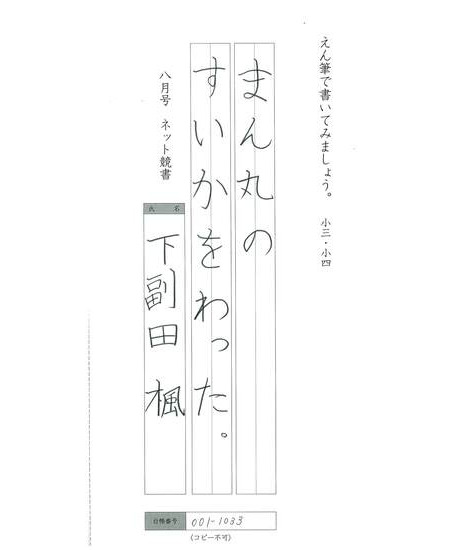 えん筆で書いてみましょう。 小三・小四
まん丸の
すいかをわった。
八月号 ネット競書
氏名
下副田 楓
台帳番号 001-1033
(コピー不可)